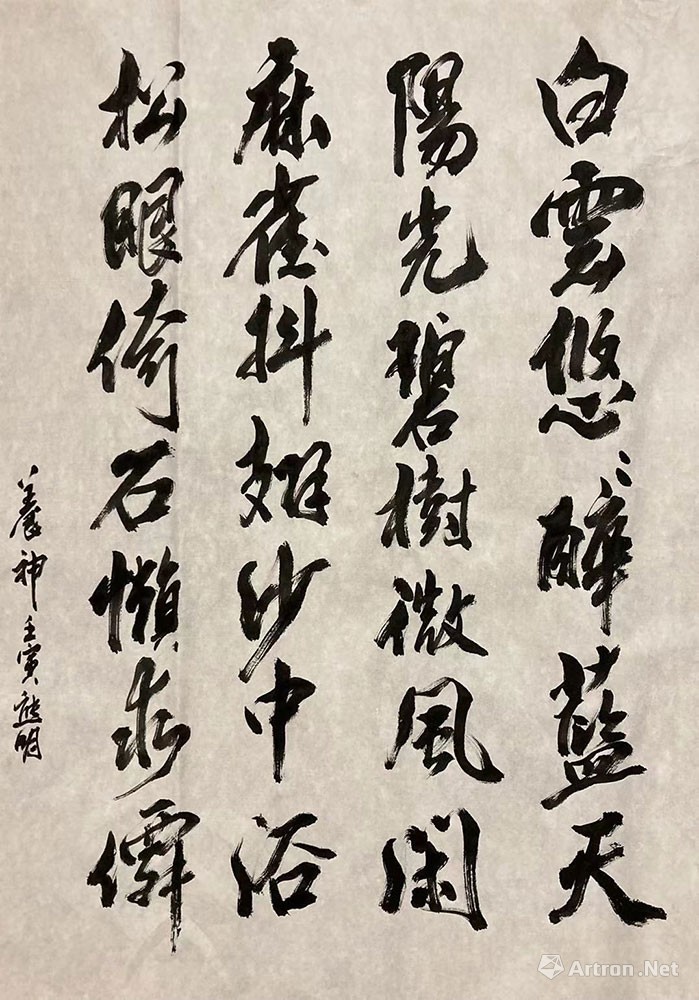 白雲悠〻醉藍天
陽光碧樹微風闲
麻雀抖翅沙中浴
松眼倚石懶求僊
養神 壬寅熊明
Artron.Net